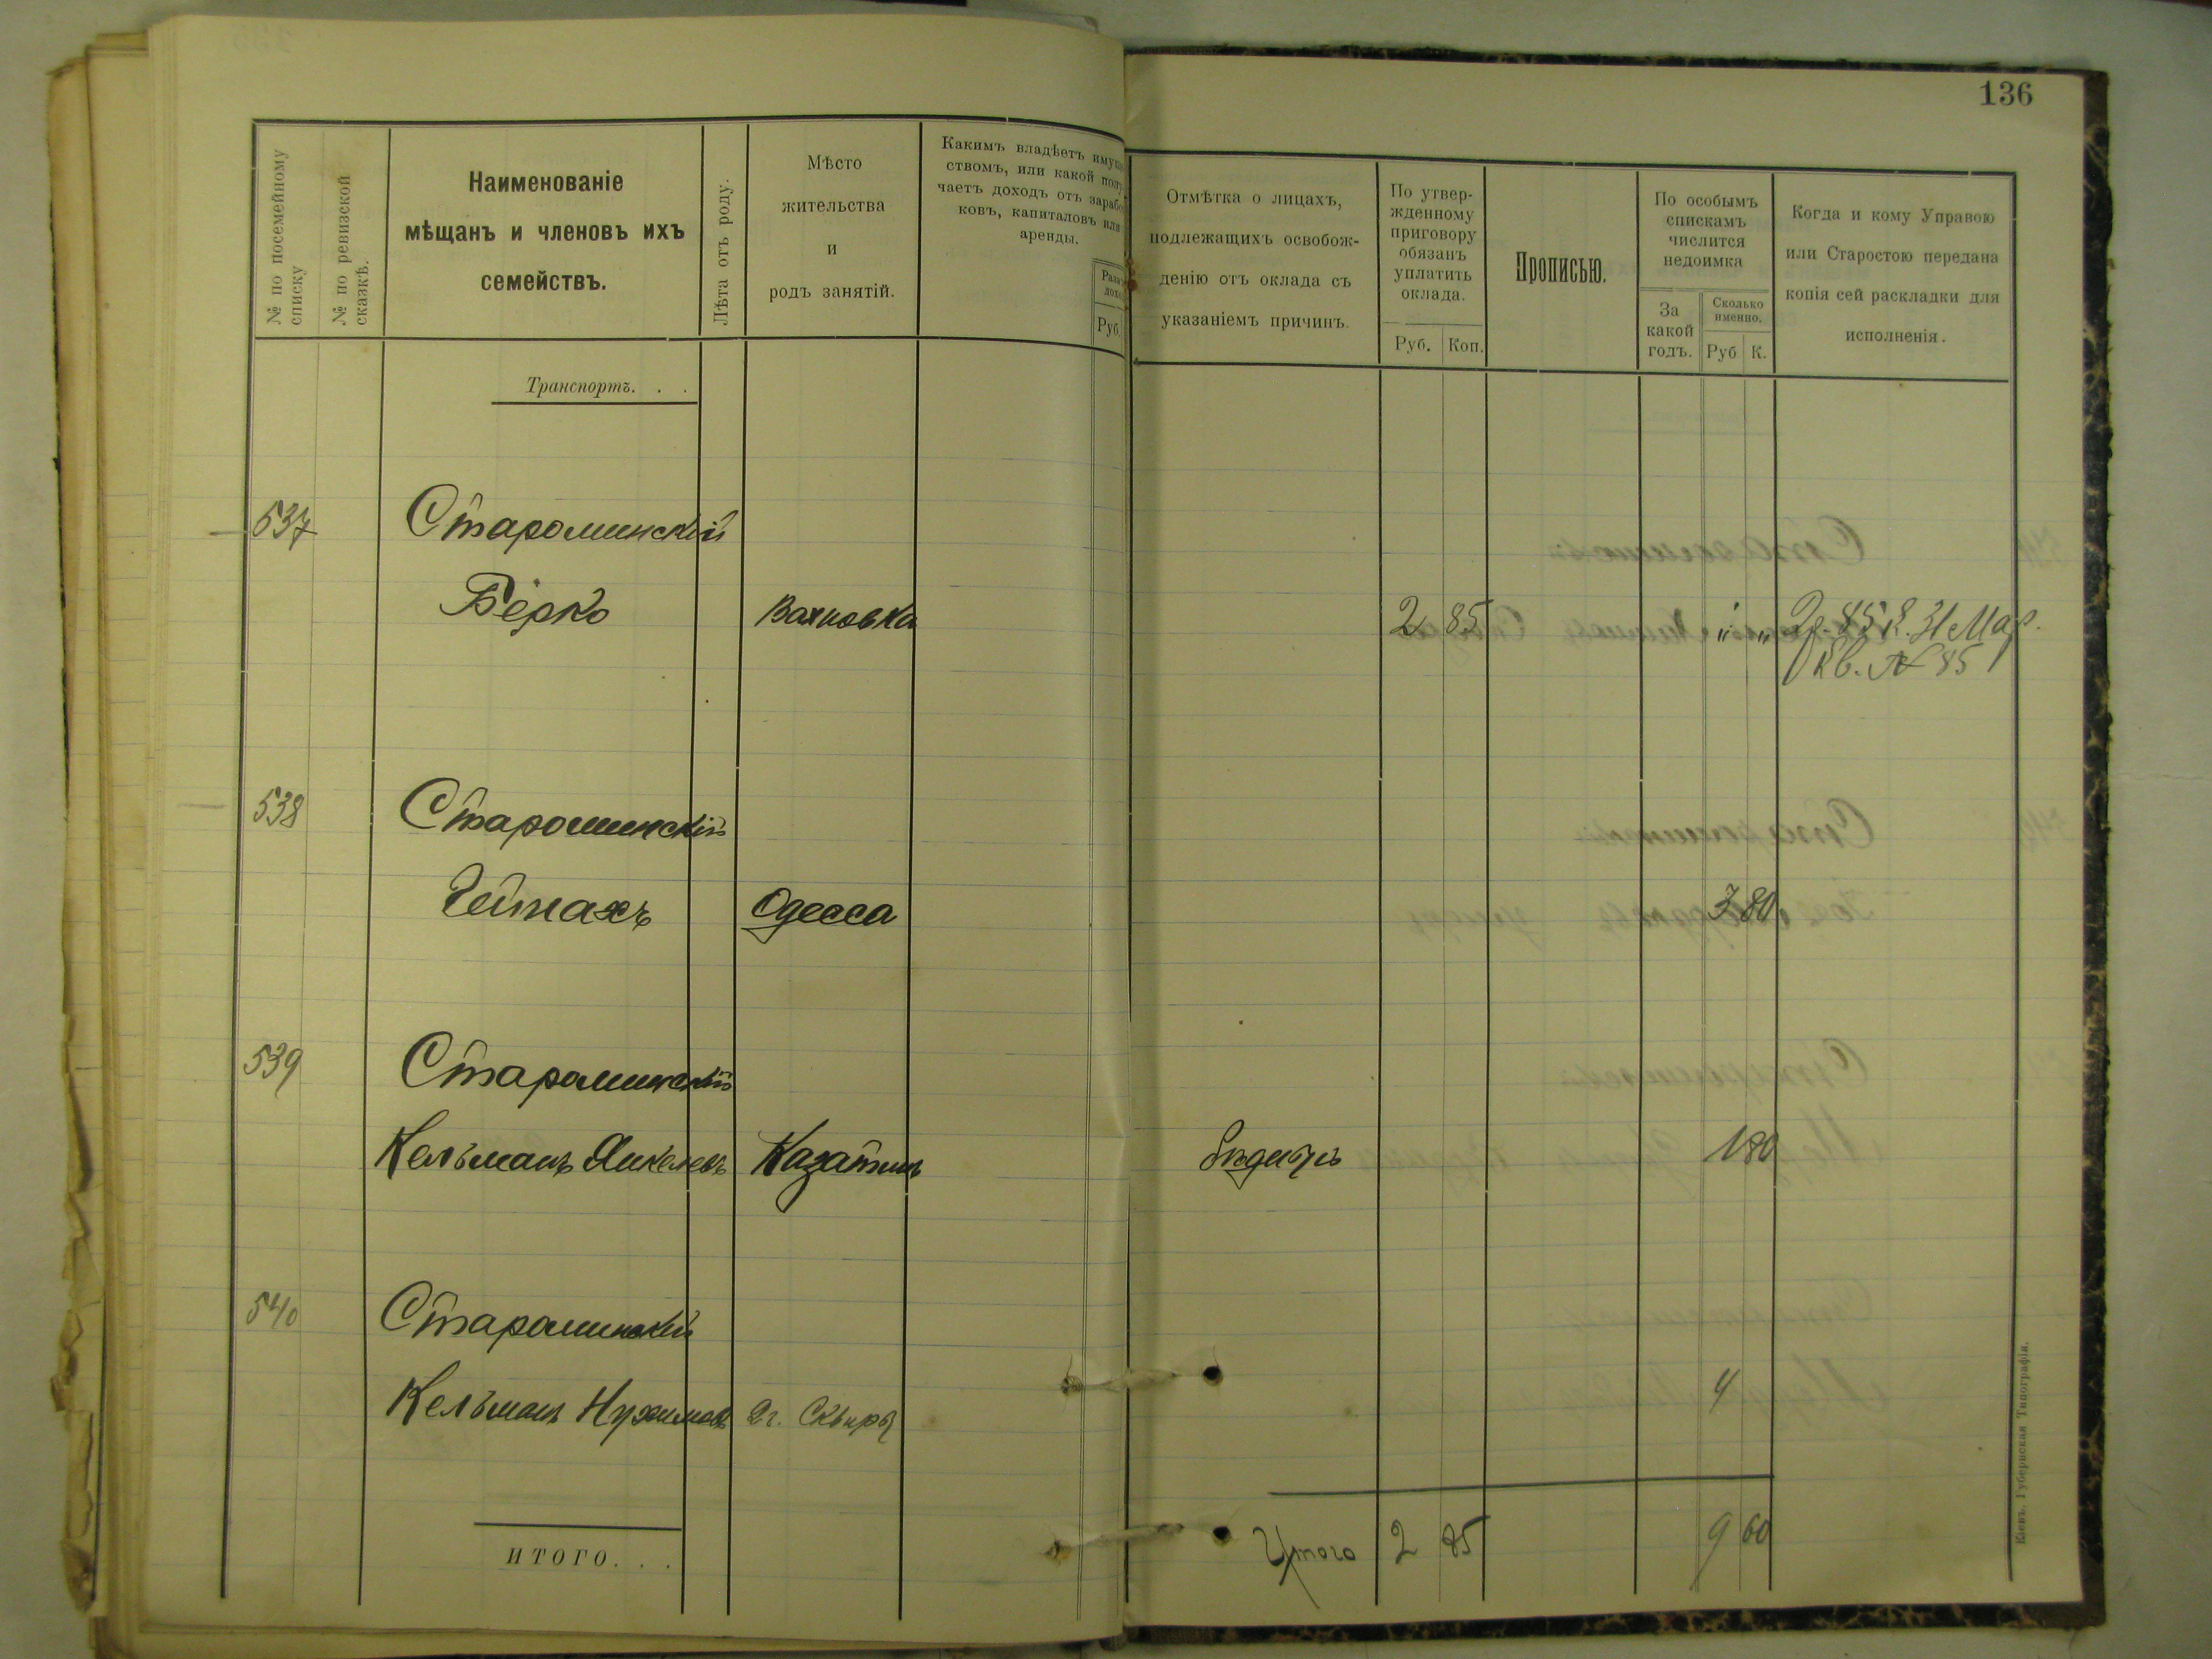 136
№ по посемейному
списку
№ по ревизской
сказкѣ.
Наименованіе
мѣщанъ и членовъ ихъ
семействъ.
Лѣта отъ роду.
Мѣсто
жительства
и
родъ занятій.
Какимъ владѣетъ имущ
ствомъ, или какой полу
чаетъ доходъ отъ зарабо
ковъ, капиталовъ или
аренды.
Руб.
Отмѣтка о лицахъ,
подлежащихъ освобож-
денію отъ оклада съ
указаніемъ причинъ.
По утвер-
жденному
приговору
обязанъ
уплатить
оклада.
Руб. Коп.
Прописью.
По особымъ
спискамъ
числится
недоимка
За
какой
годъ.
Сколько
именно.
Руб К.
Когда и кому Управою
или Старостою передана
копія сей раскладки для
исполненія.
Транспортъ. . .
537 Староминскій
Берко Вахновка 2 85 " " 2р. 85 к. 31 Мар.
Кв. № 85
538 Староминскій
Одесса 3 80
539 Староминскій
Кельманъ Янкелевъ Казатинъ 1 80
540 Староминскій
Кельманъ Нухимовъ г. Сквира 4
ИТОГО. . .
Итого 2 85 9 60
Кіевъ. Губернская Типографія.